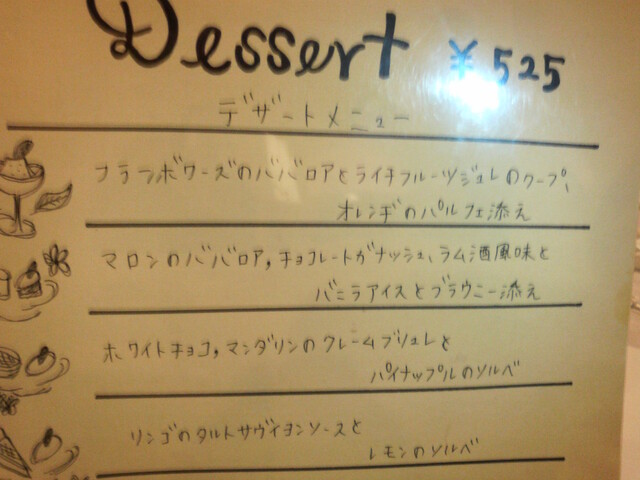 Dessert ¥525
デザートメニュー
フランボワーズのババロアとライチフルーツジュレのクープ、
オレンヂのパルフェ添え
マロンのババロア,チョコレートガナッシュ、ラム酒風味と
バニラアイスとブラウニー添え
ホワイトチョコ,マンダリンのクレームブリュレと
パイナップルのソルベ
リンゴのタルトサヴァイヨンソースと
レモンのソルベ